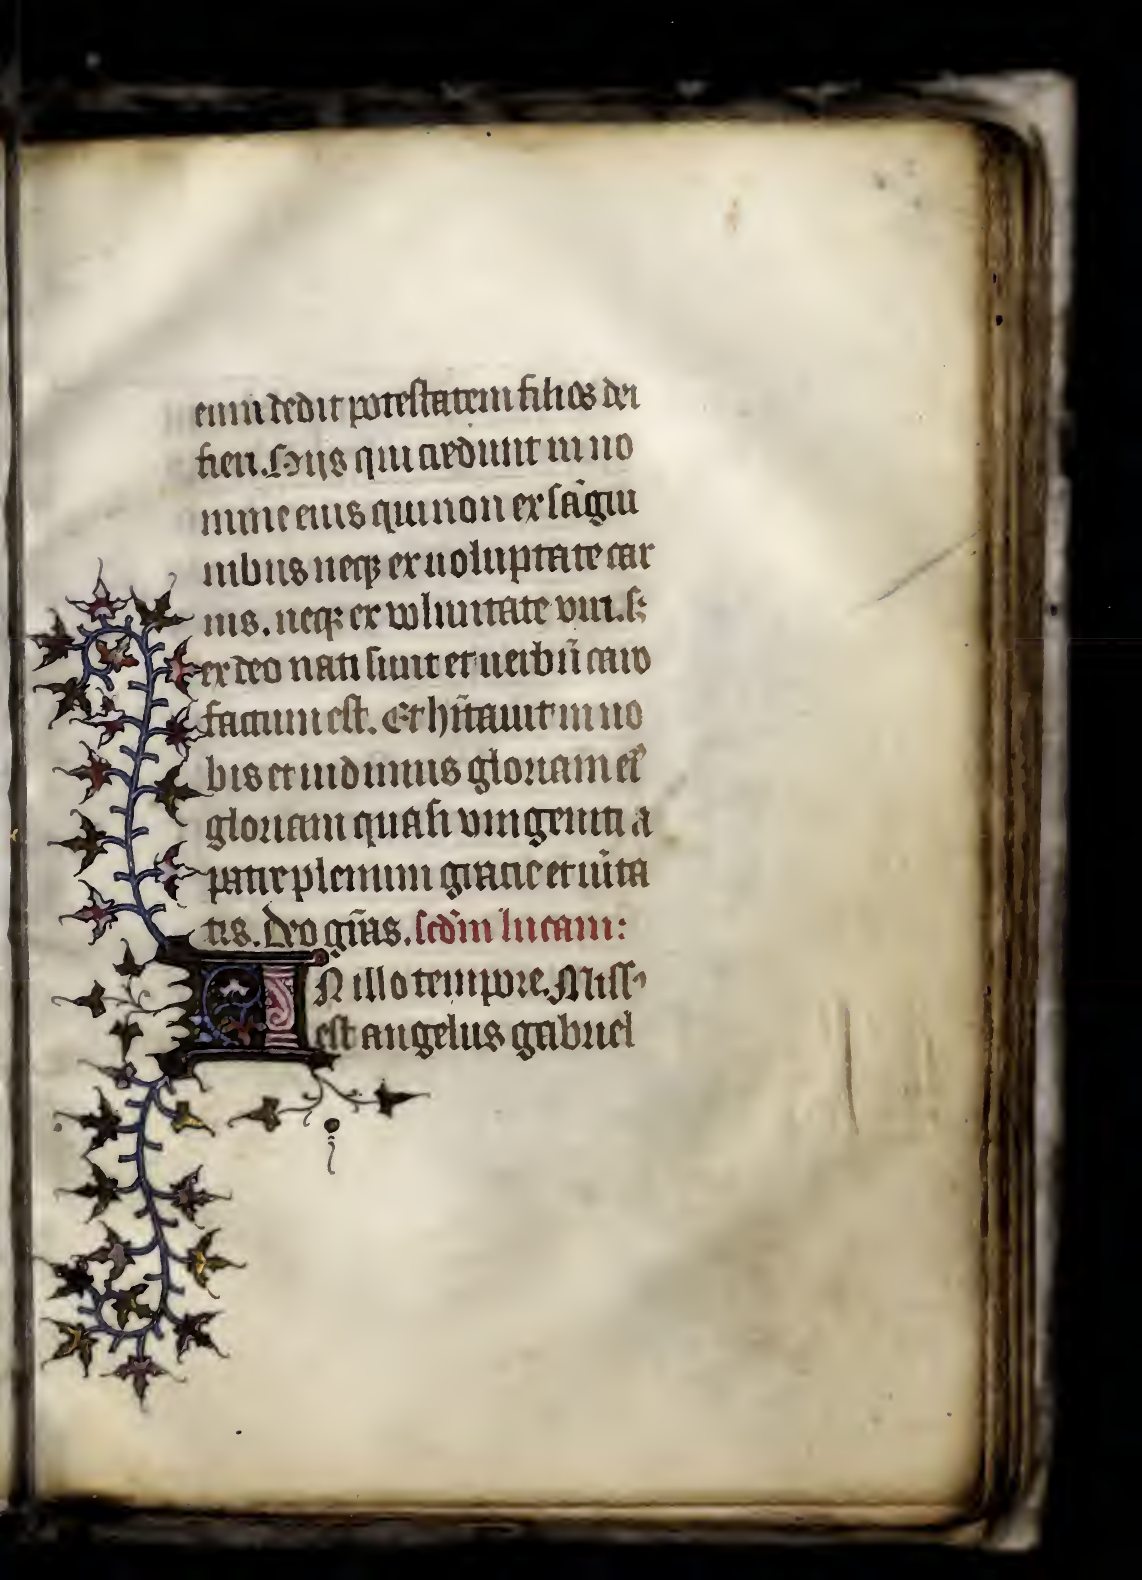 eum dedit potestatem filios dei
fieri. Hijs qui credunt in no
mine eius qui non ex sāgui
nibus neqꝫ ex uoluptate car
nis. neqꝫ ex voluntate viri. sꝫ
ex deo nati sunt et uerbū caro
factum est. Et hītauit in no
bis et uidimus gloriam ei9
gloriam quasi vnigeniti a
patre plenum gratie et u̅ita
tis. Deo gr̄as. scdm̄ lucam:
IN illo tempore. Miss9
est angelus gabriel